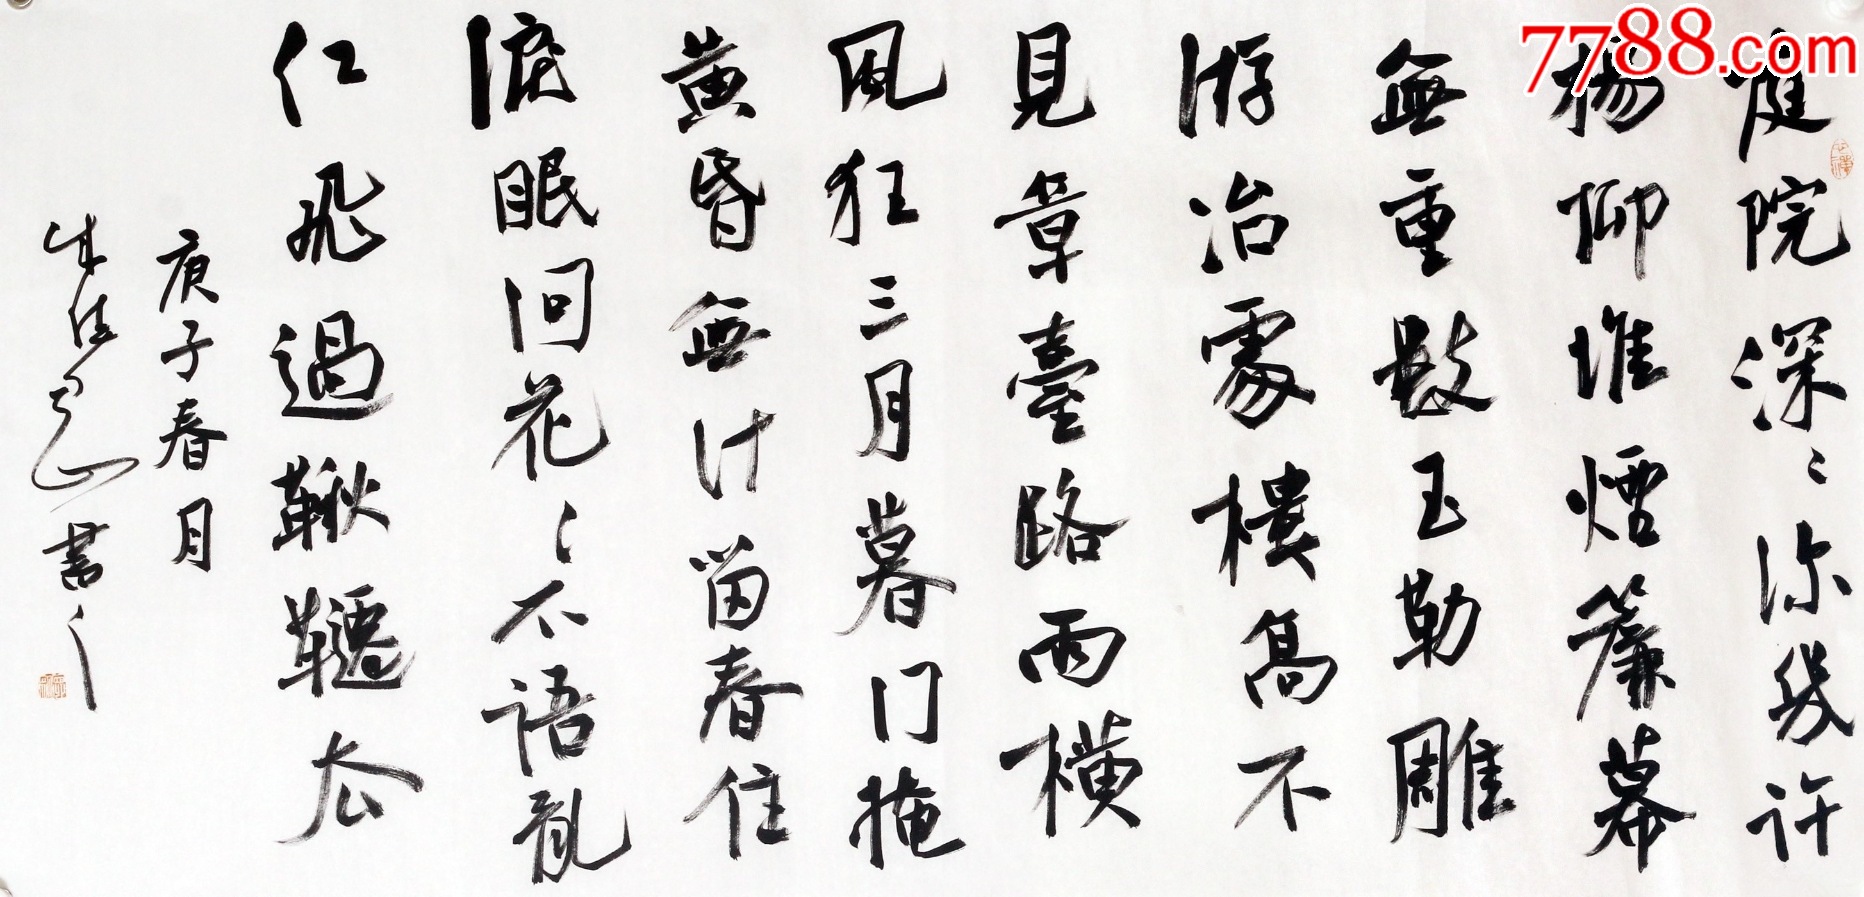 7788.com
庭院深〻深幾許
楊柳堆煙簾幕
無重數玉勒雕
游冶處樓高不
見章臺路雨橫
風狂三月暮門掩
黃昏無計留春住
淚眼問花〻不語亂
紅飛過鞦韆去
庚子春月
書之